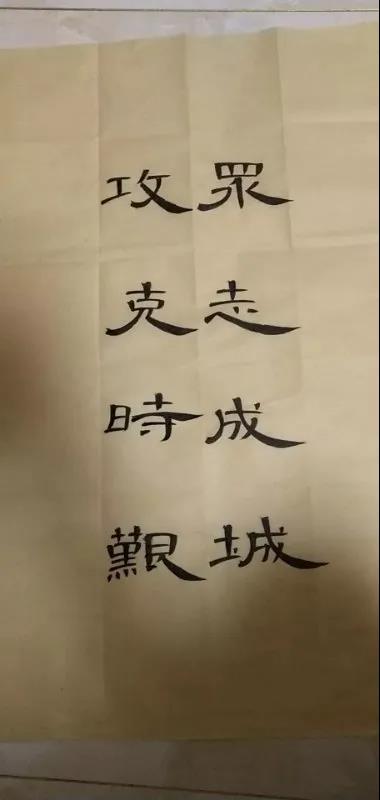 眾志成城
攻克時艱